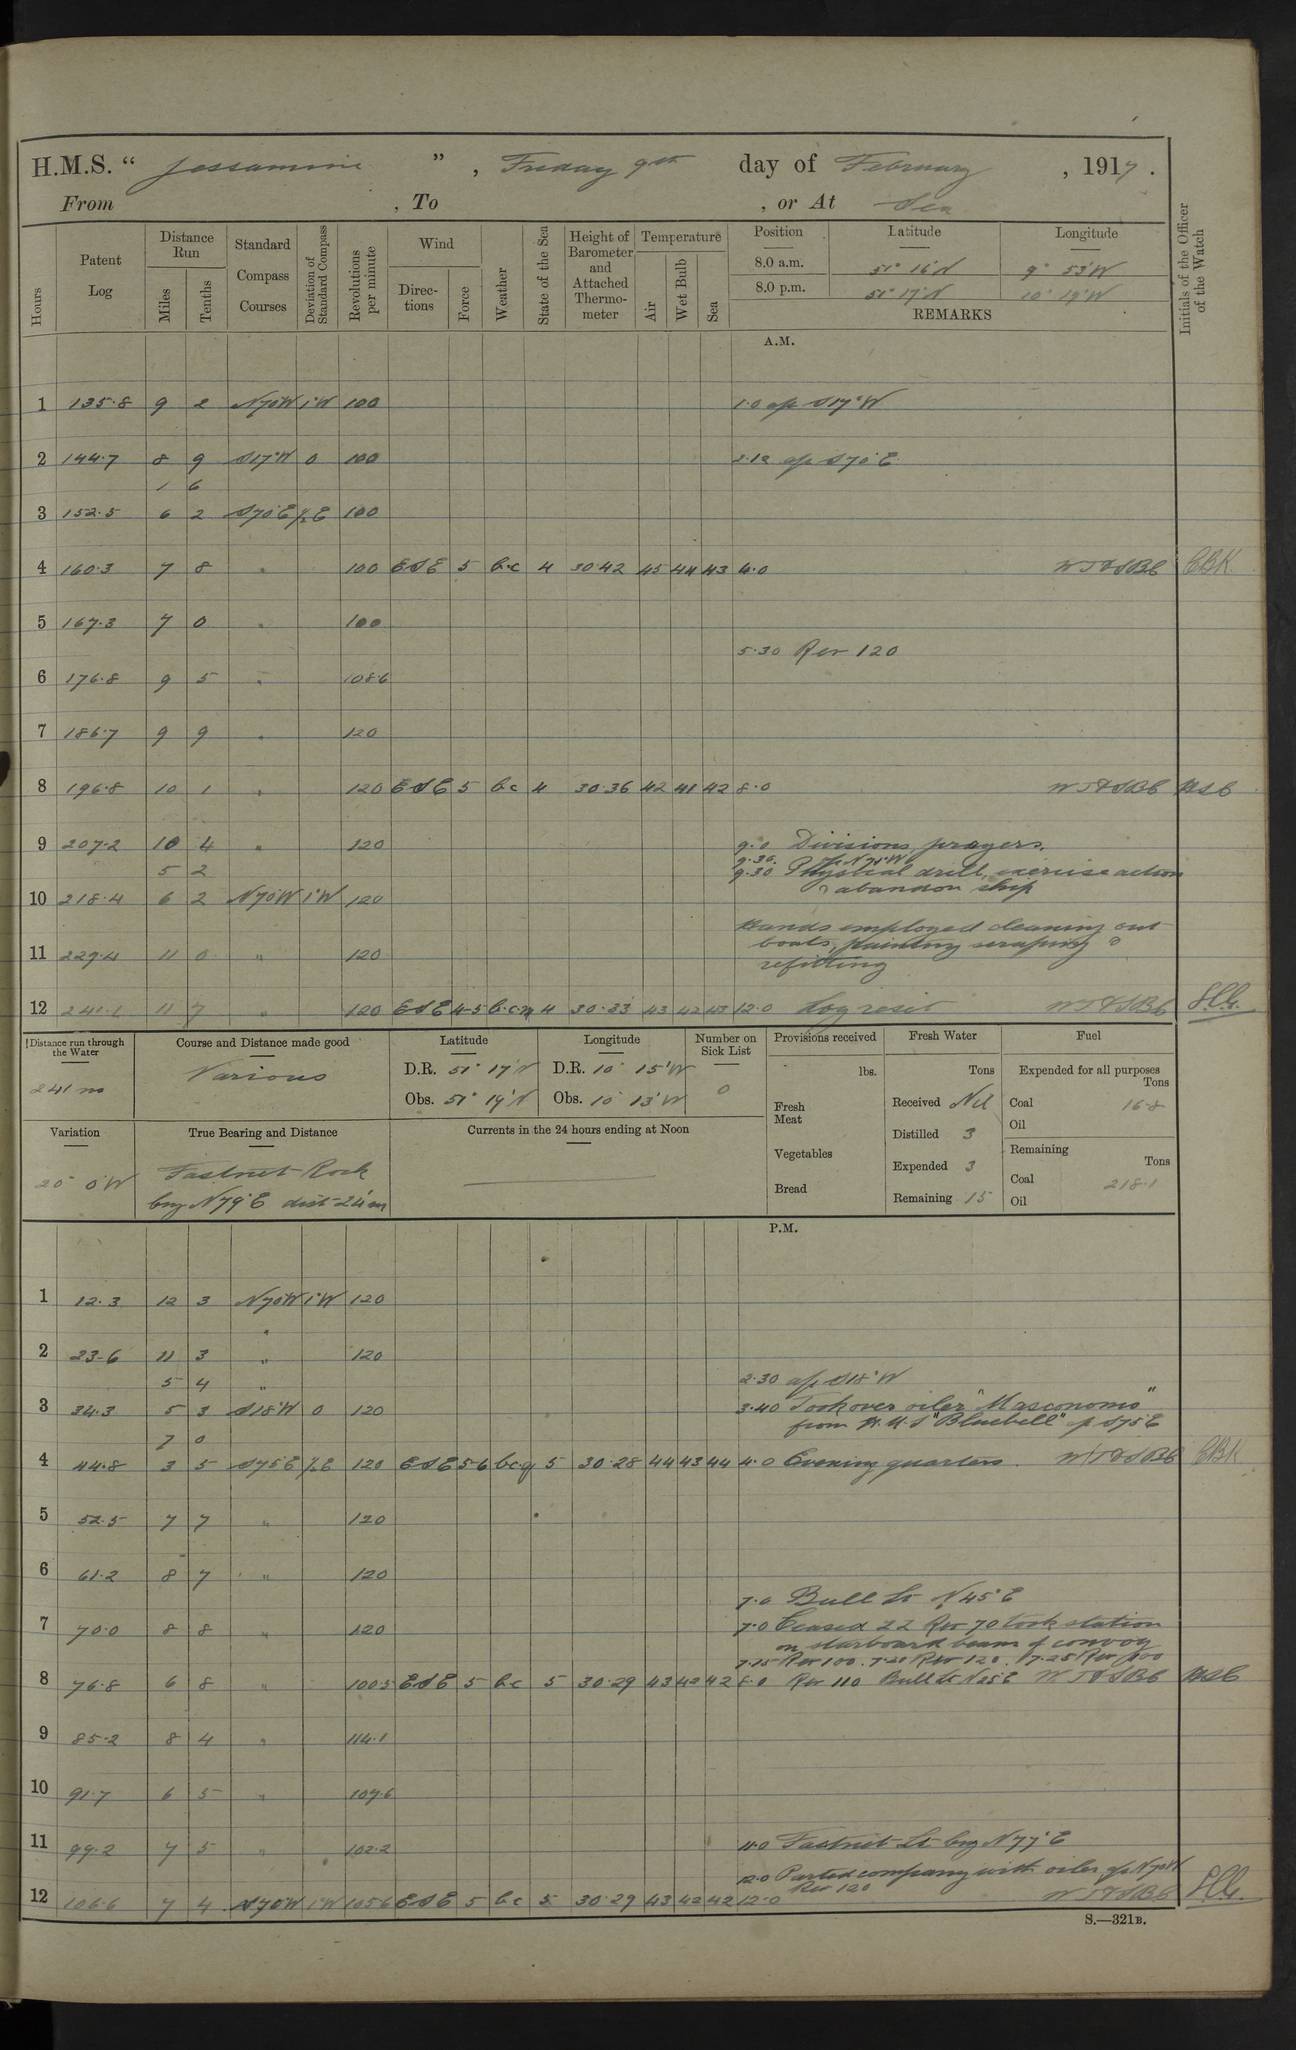 H.M.S. “ Jessamine ” , Friday 9th day of February , 1917 .
From , To , or At Sea
Hours
Patent Log
Distance Run
Miles
Tenths
Standard Compass Courses
Deviation of Standard Compass
Revolutions per minute
Wind
Directions
Force
Weather
State of the Sea
Height of Barometer and Attached Thermometer
Temperature
Air
Wet Bulb
Sea
Position Latitude Longitude
8.0 a.m. 51° 16' N 9° 53' W
8.0 p.m. 51° 17' N 10° 19' W
REMARKS
Initials of the Officer of the Watch
A.M.
1 135.8 9 2 N70W 1°W 100 1.0 a/c S17°W
2 144.7 8 9 S17°W 0 100 2.12 a/c S70°E
1 6
3 152.5 6 2 S70°E ½E 100
4 160.3 7 8 " 100 ESE 5 b.c 4 30.42 45 44 43 4.0 WT&SBC CBK
5 167.3 7 0 " 100
5.30 Rev 120
6 176.8 9 5 " 108.6
7 186.7 9 9 " 120
8 196.8 10 1 " 120 ESE 5 b.c 4 30.36 42 41 42 8.0 WT&SBC
9 207.2 10 4 " 120 9.0 Divisions, prayers.
5 2 9.30. a/c N70°W
9.30 Physical drill, exercise action
10 218.4 6 2 N70W 1°W 120 & abandon ship
Hands employed cleaning out
11 229.4 11 0 " 120 boats, painting scraping &
refitting
12 241.1 11 7 " 120 ESE 4-5 b.c.m 4 30.33 43 42 43 12.0 Log reset WT&SBC
Distance run through the Water
241 m
Course and Distance made good
Various
Latitude
D.R. 51° 17' N
Obs. 51° 19' N
Longitude
D.R. 10° 15' W
Obs. 10° 13' W
Number on Sick List
0
Provisions received
lbs.
Fresh Meat
Vegetables
Bread
Fresh Water
Tons
Received Nil
Distilled 3
Expended 3
Remaining 15
Fuel
Expended for all purposes
Tons
Coal 16.8
Oil
Remaining
Tons
Coal 218.1
Oil
Variation
20° 0' W
True Bearing and Distance
Fastnet Rock
brg N79°E dist 24 m
Currents in the 24 hours ending at Noon
P.M.
1 12.3 12 3 N70W 1°W 120
"
2 23.6 11 3 " 120
5 4 " 2.30 a/c S18°W
3 34.3 5 3 S18°W 0 120 3.40 Took over oiler "Masconomo"
from H.M.S "Bluebell" a/c S75E
7 0
4 44.8 3 5 S75E ½E 120 ESE 5-6 b.c.q 5 30.28 44 43 44 4.0 Evening quarters. WT&SBC CBK
5 52.5 7 7 " 120
6 61.2 8 7 " 120
7.0 Bull Lt N45°E
7 70.0 8 8 " 120 7.0 Ceased ZZ Rev 70 took station
on starboard beam of convoy
7.15 Rev 100. 7.20 Rev 120. 7.25 Rev 100
8 76.8 6 8 " 100.3 ESE 5 b.c 5 30.29 43 42 42 8.0 Rev 110 Bull Lt N25°E WT&SBC
9 85.2 8 4 " 114.1
10 91.7 6 5 " 107.6
11 99.2 7 5 " 102.2 11.0 Fastnet Lt brg N77°E
12.0 Parted company with oiler, a/c N70W
Rev 120
12 106.6 7 4 N70W 1°W 105.6 ESE 5 b.c 5 30.29 43 42 42 12.0 WT&SBC
S.—321B.